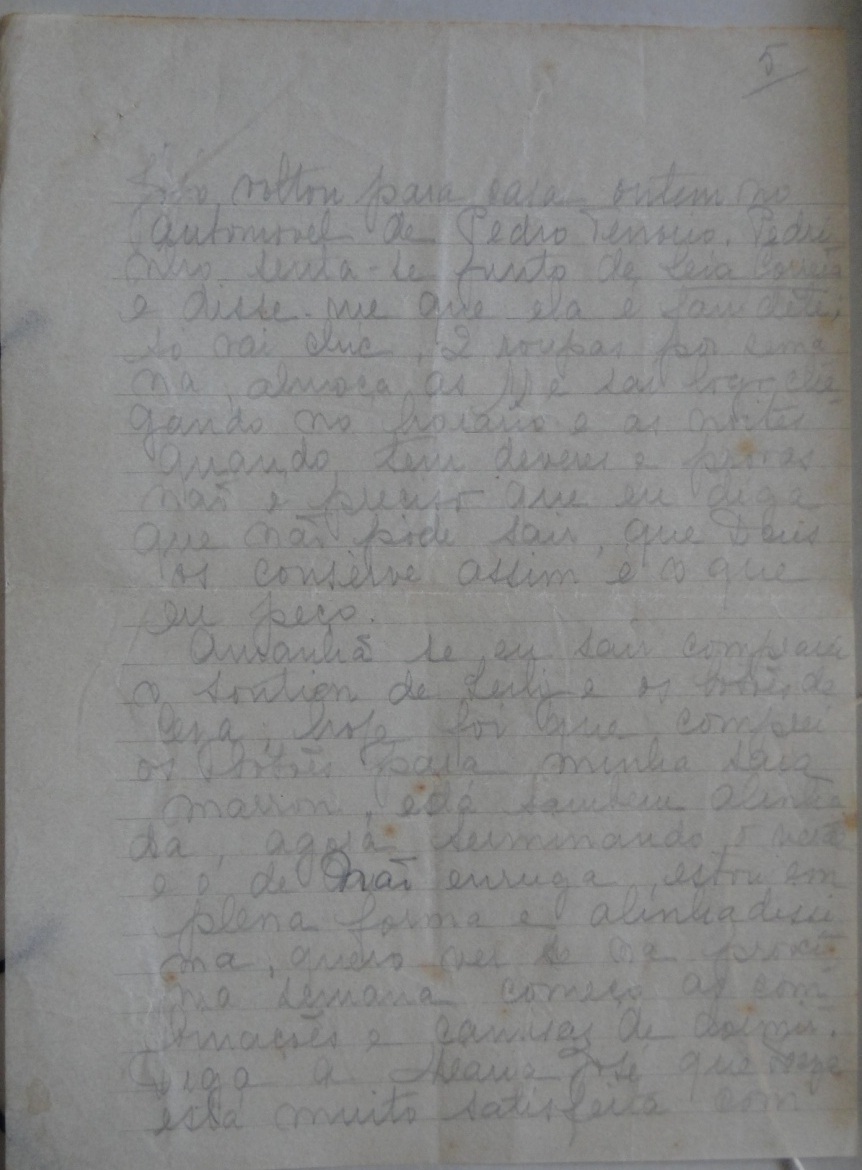 5
voltou para casa ontem no
automovel de Pedro Tenorio. Pedri
nho senta-se junto de Leia Correia
e disse-me que ela é
só vai chic, 2 roupas por sema
na, almoça as 11 e sai logo che
gando no horario e as noites
quando tem deveres e provas
não é preciso que eu diga
que não pode sair, que Deus
os conserve assim é o que
eu peço.
Amanhã se eu sair comprarei
o soutien de e os botões de
hoje foi que comprei
os botões para minha saia
marron, está tambem alinha
da, agora terminando o
e o de não enruga, estou em
plena forma e alinhadissi
ma, quero ver se na proxi
ma semana começo as com
binações e camisas de dormir.
Diga a Maria José que
está muito satisfeita com